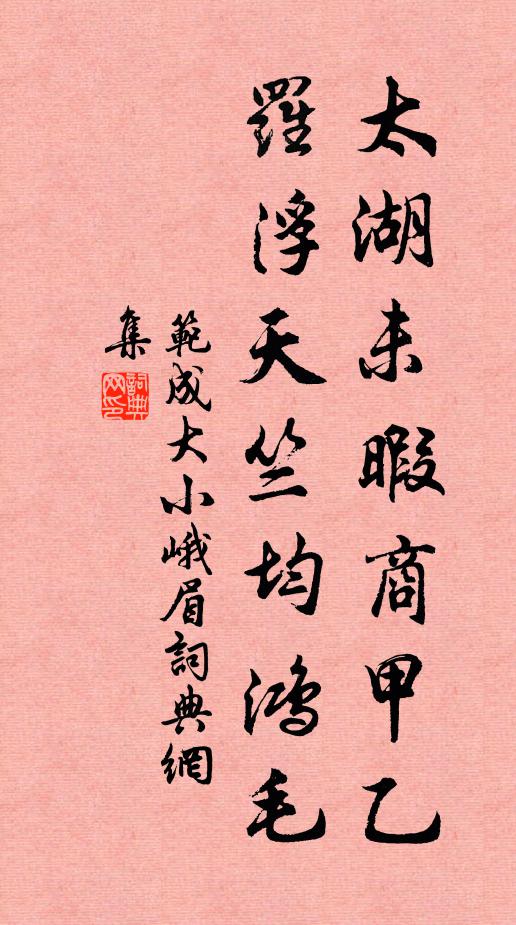 太湖未暇商甲乙
羅浮天竺均鴻毛
範成大小峨眉詞典網
集
詞典網印